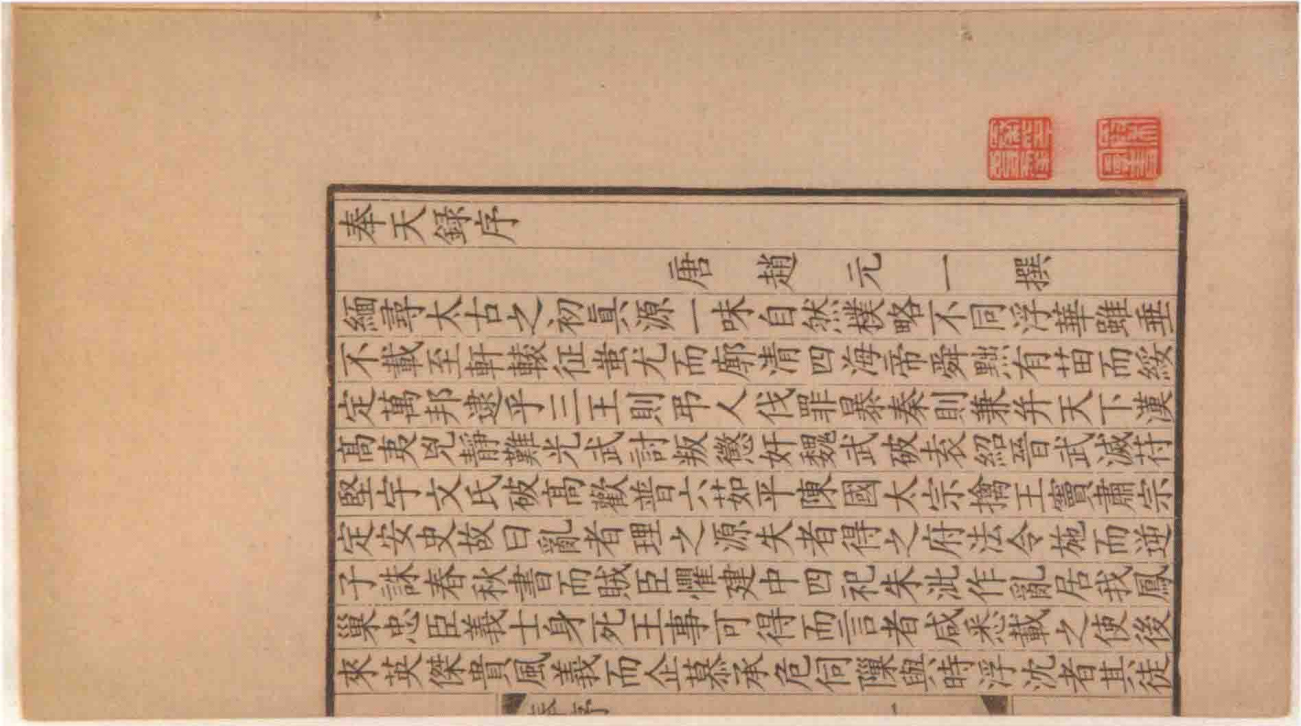 奉天録序
唐趙元一撰
緬尋太古之初眞源一味自然樸略不同浮華雖垂
不載至軒轅征蚩尤而廓清四海帝舜黜有苗而綏
定萬邦逮乎三王則弔人伐罪暴秦則兼并天下漢
髙夷兇靜難光武討叛懲奸魏武破袁紹晉武滅苻
堅宇文氏破髙歡普六茹平陳國太宗擒王竇肅宗
定安史故曰亂者理之源失者得之府法令施而逆
子誅春秋書而賊臣懼建中四祀朱泚作亂居我鳳
巢忠臣義士身死王事可得而言者咸悉載之使後
來英傑貴風義而企慕承危伺隟與時浮沈者其徒